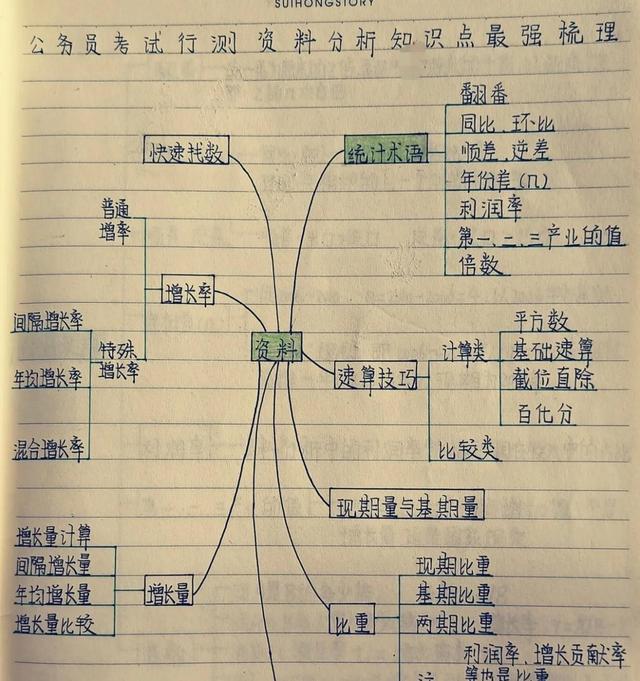 SUIHONGSTORY
公务员考试行测 资料分析知识点最强梳理
快速找数
统计术语
翻番
同比、环比
顺差、逆差
年份差(几)
利润率
第一、二、三产业的值
倍数
普通
增率
增长率
间隔增长率
特殊
增长率
年均增长率
混合增长率
资料
速算技巧
计算类
平方数
基础速算
截位直除
百化分
比较类
现期量与基期量
增长量计算
间隔增长量
年均增长量
增长量比较
增长量
比重
现期比重
基期比重
两期比重
利润率、增长贡献率
等也是比重